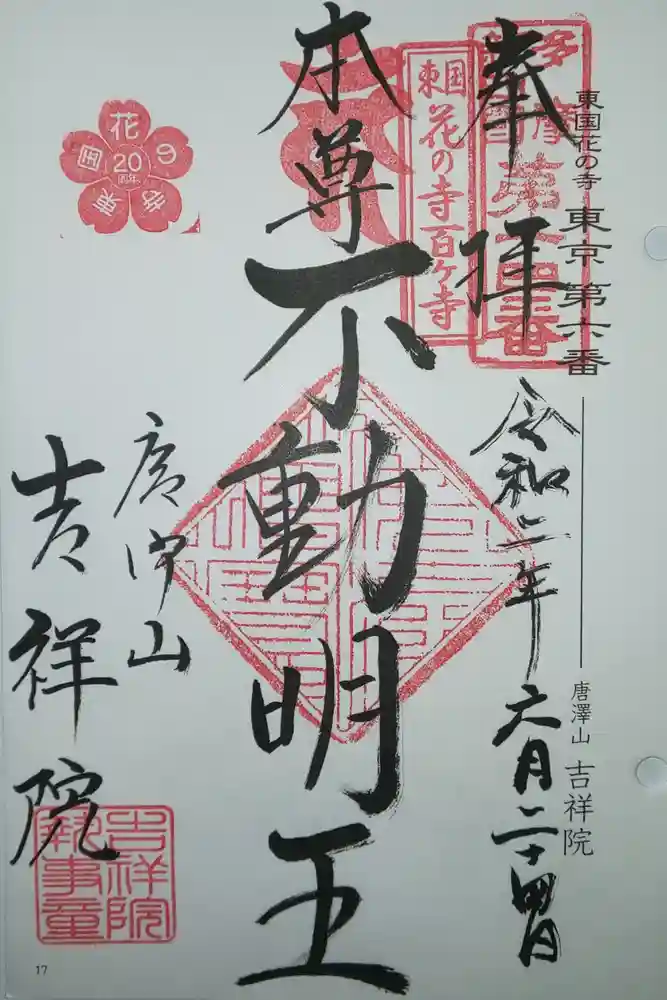 東国花の寺 東京 第六番
唐澤山 吉祥院
奉拝
令和二年六月二十四日
多摩
番
東国
花の寺百ヶ寺
本尊不動明王
唐澤山
吉祥院
吉祥院
執事章
花の寺
東国
20
周年
17